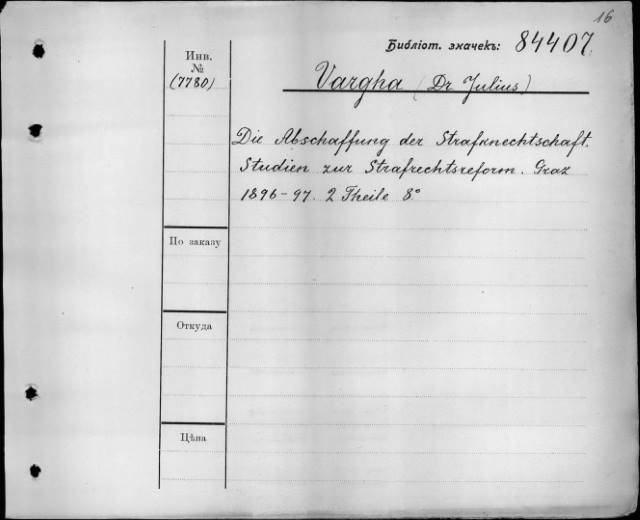 16
Библіот. значекъ: 84407.
Инв.
№
(7780)
Vargha (Dr Julius)
Die Abschaffung der Strafknechtschaft.
Studien zur Strafrechtsreform. Graz
1896-97. 2 Theile 8°
По заказу
Откуда
Цѣна